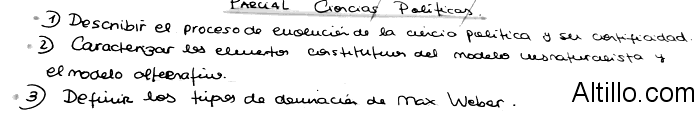 PARCIAL Ciencias Políticas.
1) Describir el proceso de evolución de la ciencia política y su cientificidad.
2) Caracterizar los elementos constitutivos del modelo iusnaturalista y
el modelo alternativo.
3) Definir los tipos de dominación de Max Weber.
Altillo.com